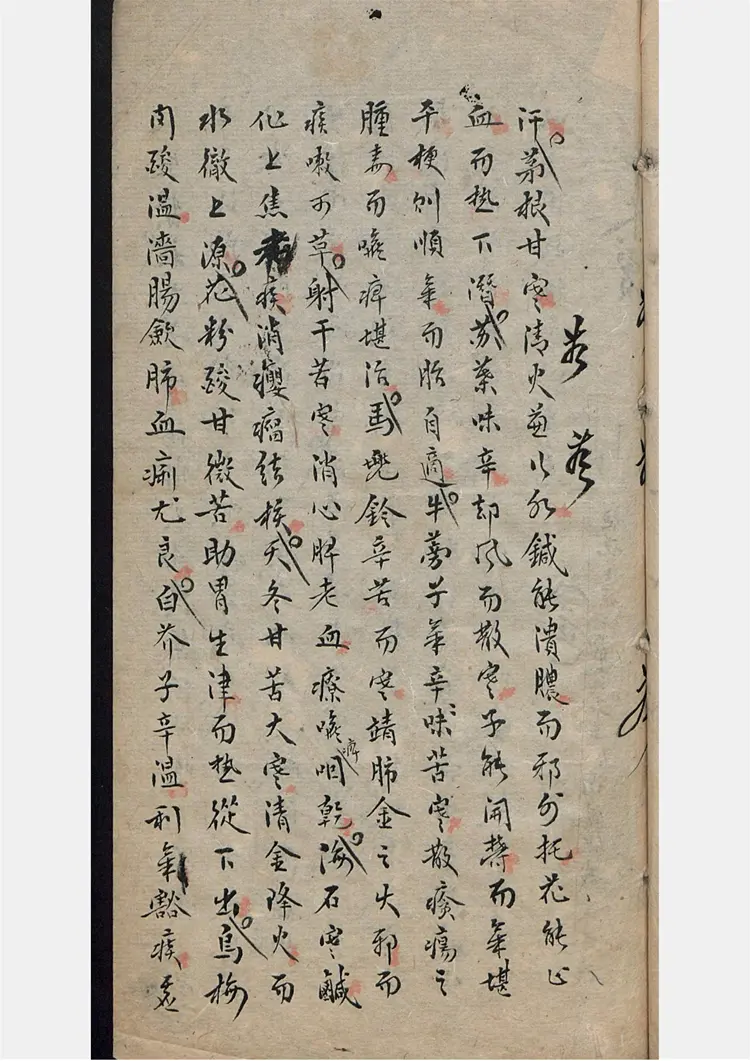 汗茅根甘寒清火兼行水鍼能潰膿而邪外托花能止
血而熱下潛苏葉味辛却風而散寒子能開鬱而氣堪
平梗則順氣而胎自適牛蒡子氣辛味苦寒散瘡瘍之
腫毒而喉痺堪治馬兜鈴辛苦而寒靖肺金之火邪而
痰嗽可草射干苦寒消心脾老血療喉痺咽乾海石寒鹹
化上焦老痰消癭瘤結核天冬甘苦大寒清金降火而
水徹上源花粉酸甘微苦助胃生津而熱從下出烏梅
閃酸温濇腸斂肺血痢尤良白芥子辛温利氣豁痰